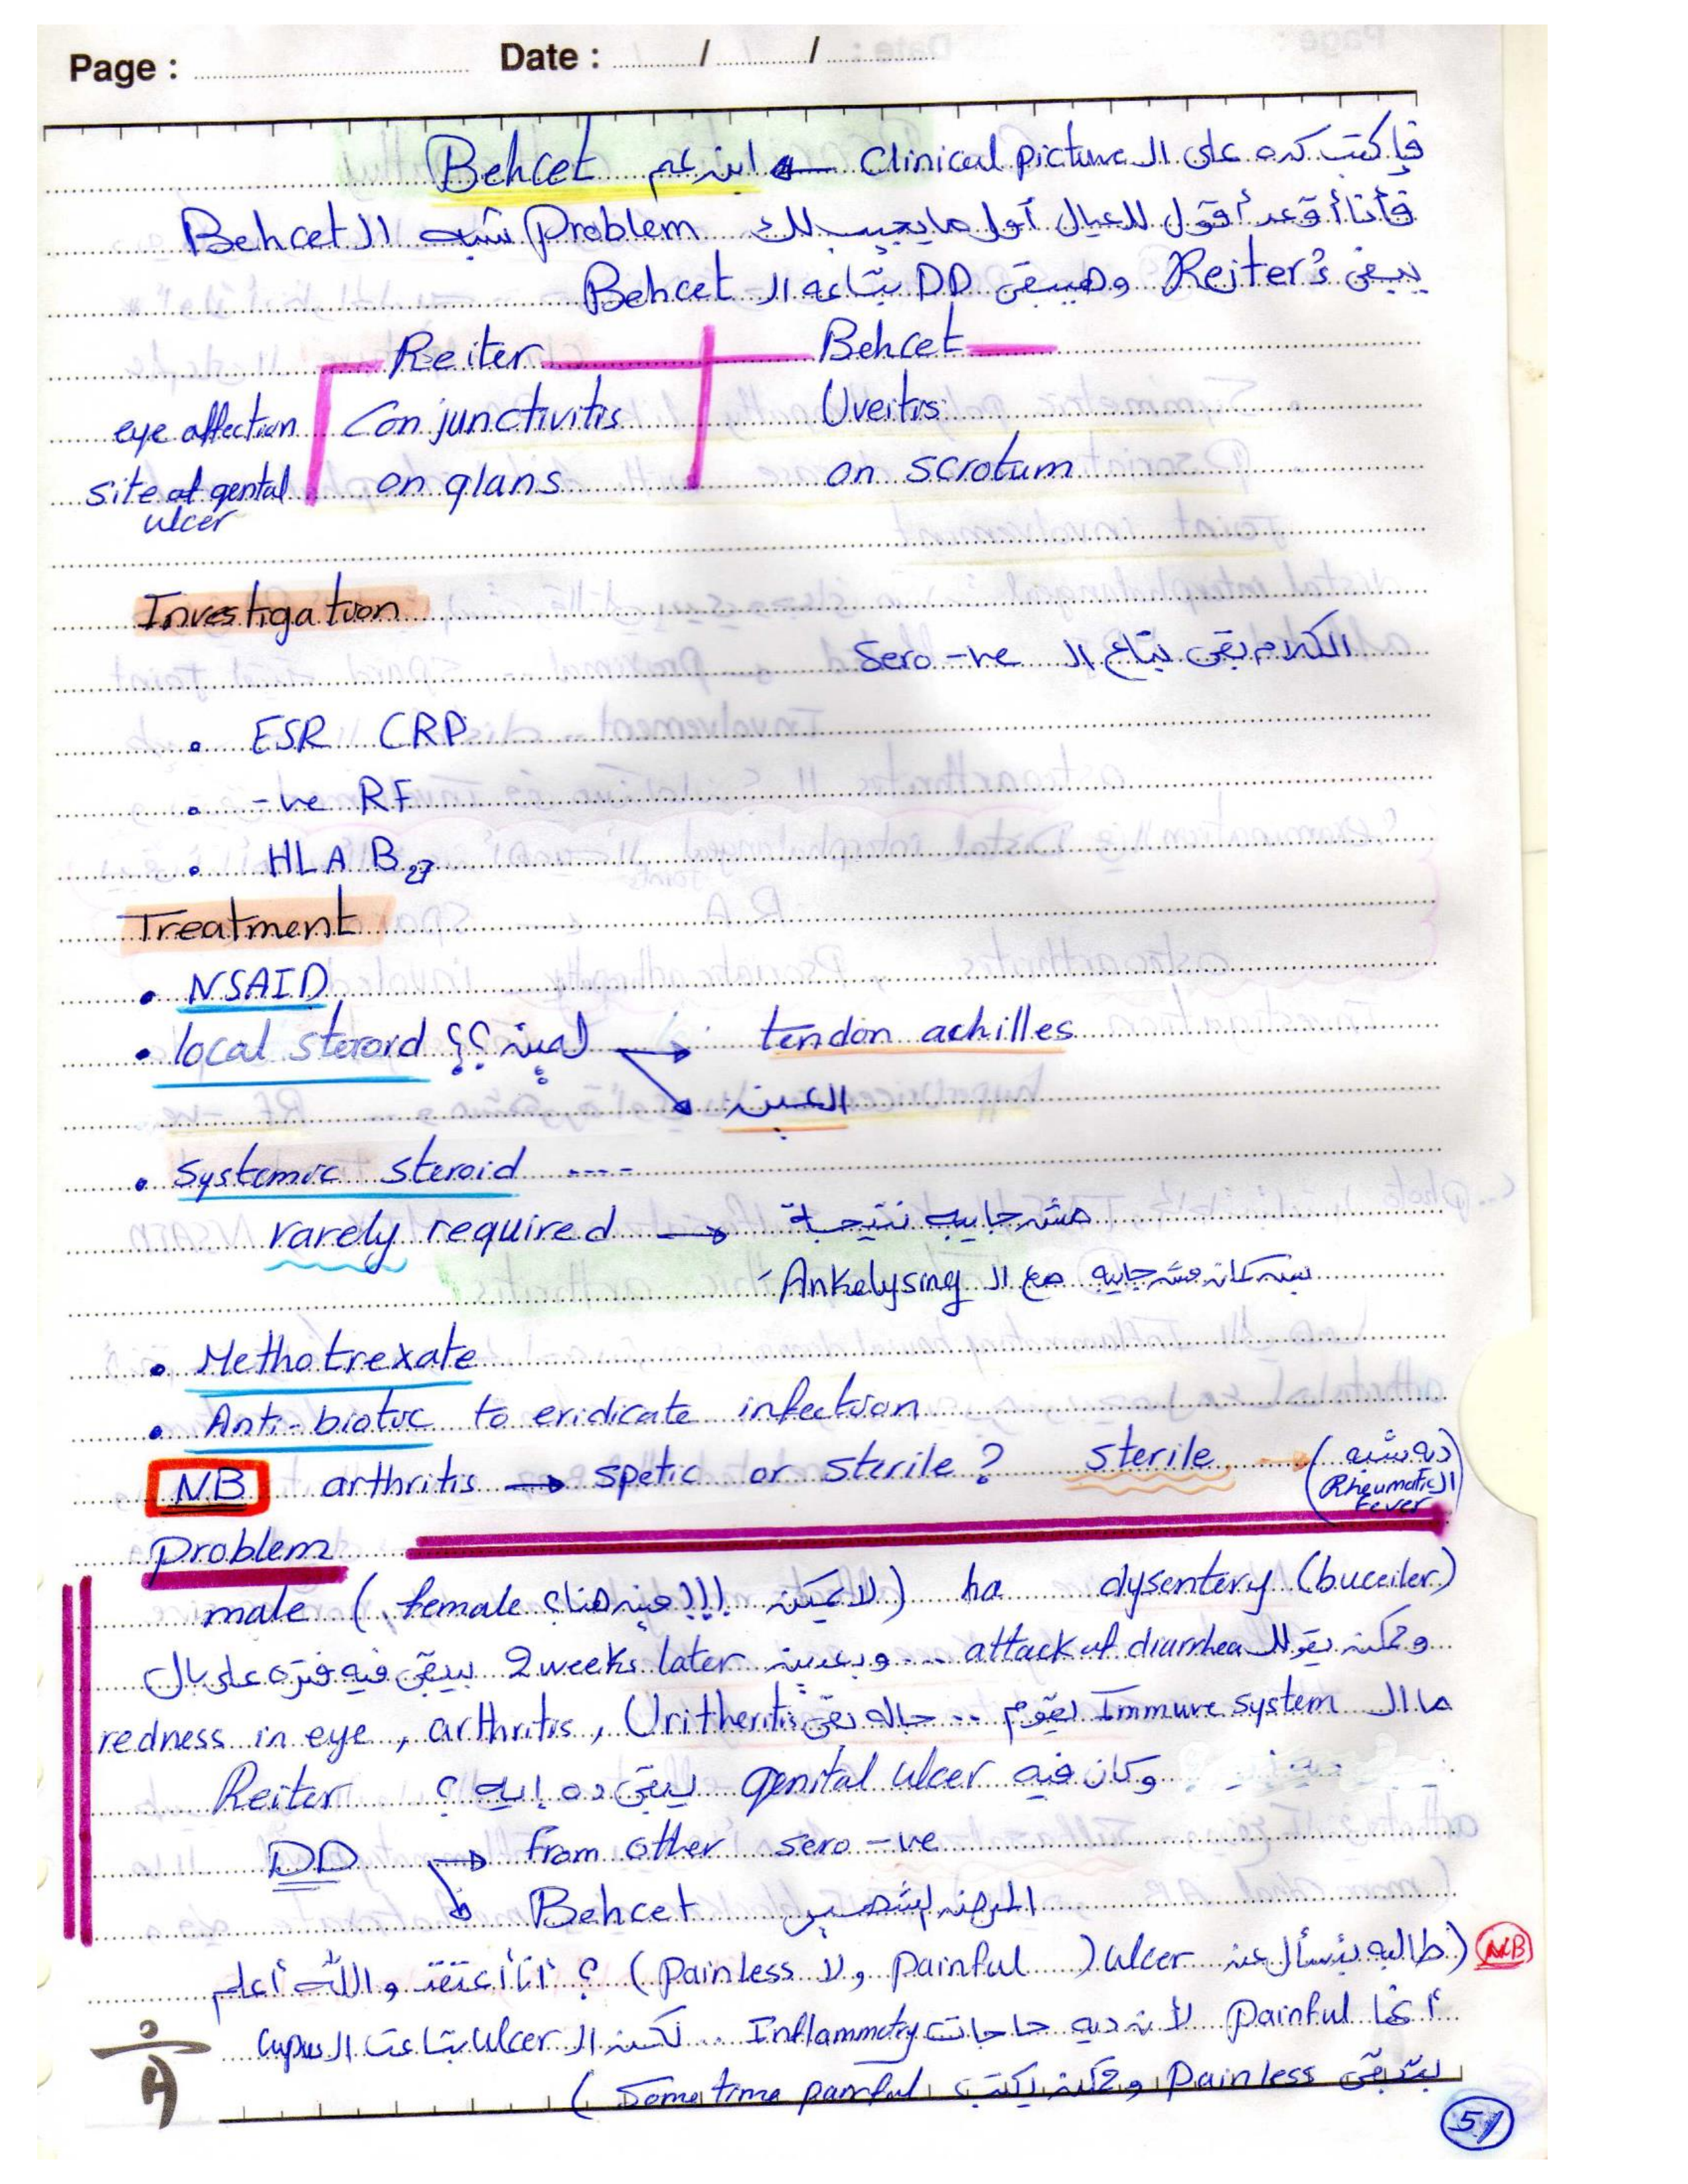 Page : Date : / /
فإكتب كده على ال Clinical picture ← ابن عم Behcet
فأنا أقعد أقول للعيال أول ما يجيب لك Problem شبه ال Behcet
يبقى Reiter's وهيبقى DD بتاعه ال Behcet
Reiter Behcet
eye affection Conjunctivitis Uveitis
site of gental ulcer on glans on scrotum
Investigation
الكلام بقى بتاع ال Sero -ve
• ESR CRP
• -ve RF
• HLA B27
Treatment
• NSAID
• local steroid لمين؟؟ → tendon achilles
→ العين
• Systemic steroid ----
rarely required → مش جايبه نتيجة
بس كان مش جايبه مع ال Ankelysing
• Methotrexate
• Anti-biotic to eridicate infection
NB arthritis → spetic or sterile? sterile → (ده شبه ال Rheumatic Fever)
Problem
male (female لا يمكن !!! مين هنا؟) ha dysentery (buceiler)
وممكن يقولك attack of diarrhea ... وبعدين 2 weeks later بيبقى فيه فتره على بال
ما ال Immune system يقوم .. جاله بقى Uritheritis , arthritis , redness in eye
وكان فيه genital ulcer يبقى ده إيه ؟ Reiter
DD → from other sero -ve
→ Behcet
NB (طالبه بتسأل عن ulcer (painful ولا Painless) ؟ أنا أعتقد والله أعلم
أنها Painful لأن ديه حاجات Inflammetry .. لكن ال ulcer بتاعت ال Lupus
بتبقى Painless وممكن يكتب Some time painful)
51